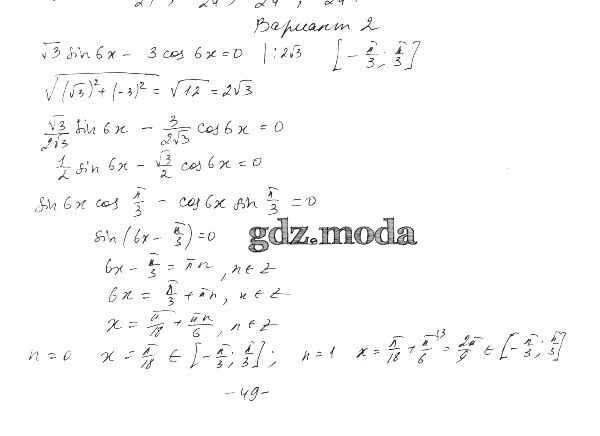 Вариант 2
√3 sin 6x - 3 cos 6x = 0 | : 2√3 [-π/3; π/3]
√((√3)² + (-3)²) = √12 = 2√3
√3/2√3 sin 6x - 3/2√3 cos 6x = 0
1/2 sin 6x - √3/2 cos 6x = 0
sin 6x cos π/3 - cos 6x sin π/3 = 0
sin(6x - π/3) = 0
gdz.moda
6x - π/3 = πn, n ∈ Z
6x = π/3 + πn, n ∈ Z
x = π/18 + πn/6, n ∈ Z
n = 0 x = π/18 ∈ [-π/3; π/3]; n = 1 x = π/18 + π/6 \3 = 2π/9 ∈ [-π/3; π/3]
-49-